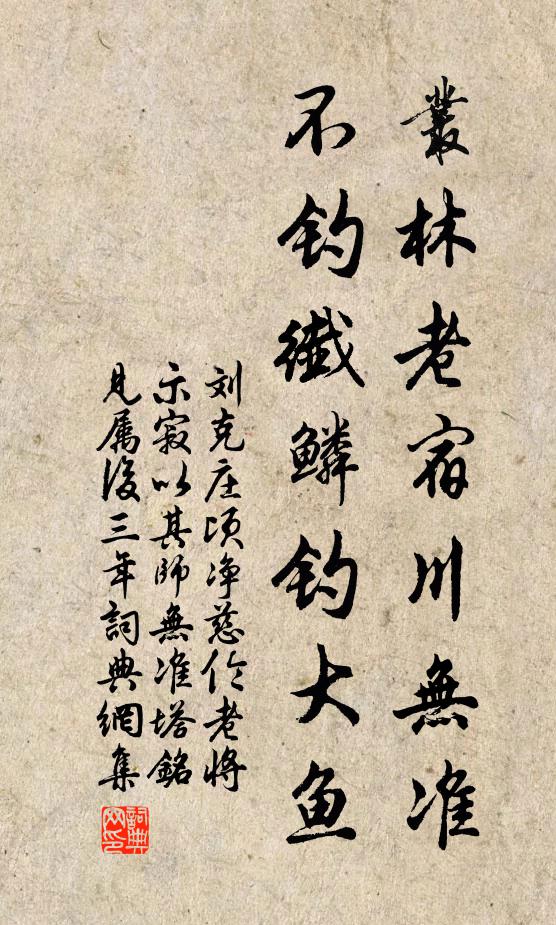 叢林老宿川無准
不钓纖鳞钓大鱼
刘克庄顷净慈伦老将
示寂以其師無准塔銘
見属後三年詞典網集
詞典网印